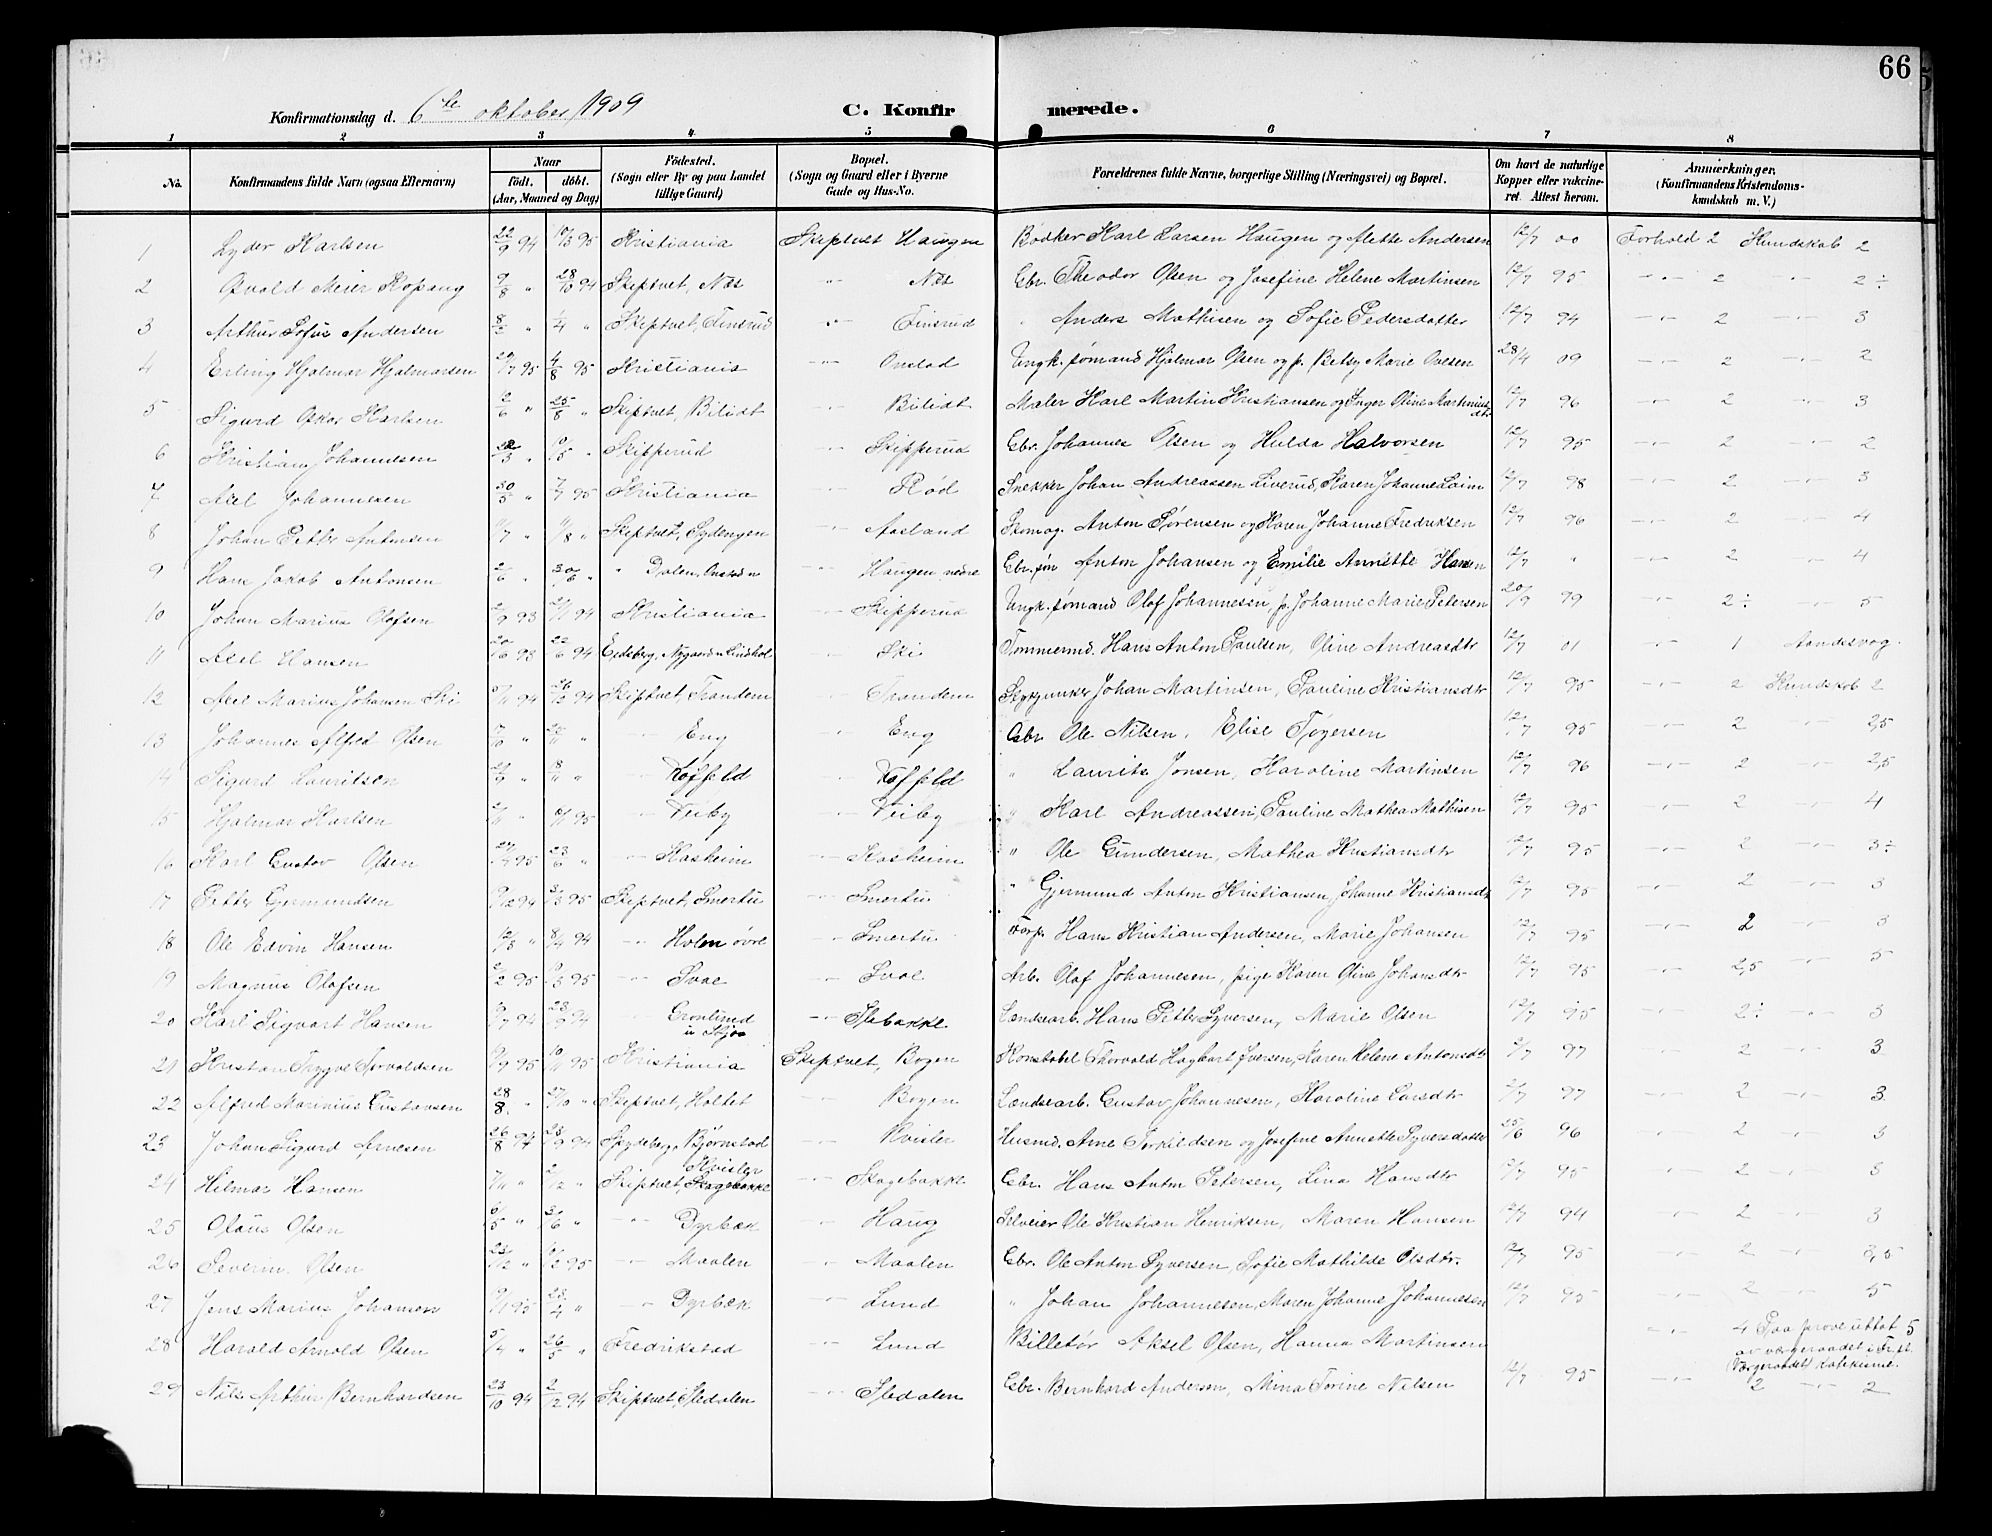 66
Konfirmationsdag d. 6te oktober 1909 C. Konfirmerede.
1 2 3 4 5 6 7 8
No. Konfirmandens fulde Navn (ogsaa Efternavn) Naar Født. døbt. (Aar, Maaned og Dag) Födested. (Sogn eller By og paa Landet tillige Gaard.) Bopæl. (Sogn og Gaard eller i Byerne Gade og Hus-No. Forældrenes fulde Navne, borgerlige Stilling (Næringsvei) og Bopæl. Om havt de naturlige Kopper eller vakcineret. Attest herom. Anmærkninger. (Konfirmandens Kristendomskundskab m. V.)
1 Lyder Karlsen 22/9 94 17/3 95 Kristiania Skiptvet Haugen Bødker Karl Larsen Haugen og Alette Andersen 12/7 00 Forhold 2 Kundskab 2
2 Osvald Meier Kopang 9/8 " 28/10 94 Skiptvet, Næs -"- Næs Gbr. Theodor Olsen og Josefine Helene Martinsen 12/7 95 -"- 2 " 2÷
3 Arthur Sofus Andersen 8/2 " 1/4 " Skiptvet, Finsrud -"- Finsrud Anders Mathisen og Sofie Pedersdatter 12/7 94 -"- 2 -"- 3
4 Erling Hjalmar Hjalmarsen 4/8 95 Kristiania -"- Onstad Ungk. sømand Hjalmar Olsen og p. Betsy Marie Ovesen 28/4 09 -"- 2 -"- 2
5 Sigurd Oskar Karlsen 2/6 " 25/8 " Skiptvet, Bilidt -"- Bilidt Maler Karl Martin Kristiansen og Inger Oline Martinusdtr 12/7 96 -"- 2 -"- 3
6 Kristian Johannesen Skipperud -"- Skipperud Gbr. Johannes Olsen og Hulda Halvorsen 12/7 95 -"- 2 -"- 2
7 Axel Johannesen 30/5 " 7/7 95 Kristiania -"- Rød Snekker Johan Andreassen Liverud, Karen Johanne Laim 12/7 98 -"- 2 -"- 3
8 Johan Petter Antonsen 11/8 " Skiptvet, Sydengen -"- Aasland Skomag. Anton Sørensen og Karen Johanne Fredriksen 12/7 96 -"- 2 -"- 4
9 Hans Jakob Antonsen 2/6 " 30/6 " " Dalen, Onstad n -"- Haugen nedre Gbr. søn Anton Johansen og Emilie Annette Hansen 12/7 " -"- 2 -"- 4
10 Johan Marius Olafsen 2/9 93 21/1 94 Kristiania -"- Skipperud Ungk. sømand Olaf Johannesen, p. Johanne Marie Petersen 20/9 99 -"- 2÷ -"- 5
11 Axel Hansen 20/6 93 22/6 94 Eidsberg, Nygaard u Lindhol -"- Ski Tømmermd. Hans Anton Paulsen, Oline Andreasdtr 12/7 01 -"- 1 Aandsvag.
12 Axel Marius Johansen Ski 5/11 94 26/12 94 Skiptvet, Trandem -"- Trandem Johan Martinsen, Pauline Kristiansdtr 12/7 95 -"- 2 Kundskab 2
13 Johannes Alfred Olsen 17/10 " 22/11 " -"- Eng -"- Eng Gbr Ole Nilsen, Elise Tøgersen 12/7 95 -"- 2 2,5
14 Sigurd Lauritsen 21/9 " 18/11 " -"- Køpfeld -"- Køpfeld " Laurits Jonsen, Karoline Martinsen 12/7 96 -"- 2 -"- 2,5
15 Hjalmar Karlsen 2/11 " 6/1 95 -"- Veiby -"- Veiby " Karl Andreassen, Pauline Mathea Mathisen 12/7 95 -"- 2 -"- 4
16 Karl Gustav Olsen 95 23/6 " -"- Kasheim -"- Kasheim " Ole Gundersen, Mathea Kristiansdtr 12/7 95 -"- 2 -"- 3÷
17 Petter Gjermundsen 9/12 94 3/3 95 Skiptvet, Smertu -"- Smertu " Gjermund Anton Kristiansen, Johanne Kristiansdtr 12/7 95 -"- 2 -"- 3
18 Ole Edvin Hansen 12/3 " 8/4 94 -"- Holm øvre -"- Smertu Torp. Hans Kristian Andersen, Marie Johansen 12/7 95 -"- 2 -"- 3
19 Magnus Olafsen 2/2 95 10/3 95 -"- Svae -"- Svae Arb. Olaf Johannesen, pige Karen Oline Johansdtr 12/7 95 -"- 2,5 -"- 5
20 Karl Sigvart Hansen 94 23/9 94 -"- Grønlund u Søjoa -"- Slebakke Landsarb. Hans Petter Syversen, Marie Olsen 12/7 95 -"- 2÷ -"- 3
21 Kristian Trygve Torvaldsen 95 10/11 95 Kristiania Skiptvet, Bogen Konstabel Thorvald Hagbart Iversen, Karen Helene Antonsdtr 2/7 97 -"- 2 -"- 3
22 Alfred Marinius Gustavsen 28/8 " 27/10 " Skiptvet, Holtet -"- Bogen Landsarb. Gustav Johannesen, Karoline Larsdtr 2/7 97 -"- 2 -"- 3
23 Johan Sigurd Arnesen 26/8 94 23/9 94 Spydeberg, Bjørnstad -"- Kvisler Husmd. Arne Torkildsen og Josefine Annette Syversdatter 25/6 96 -"- 2 -"- 3
24 Hilmar Hansen 7/11 " 2/12 " Skiptvet, Kvisler Skogebakke -"- Skogebakke Gbr. Hans Anton Petersen, Lina Hansdtr 12/7 95 -"- 2 -"- 3
25 Olaus Olsen 6/5 " 3/6 " -"- Dyrbæk -"- Haug Selveier Ole Kristian Henriksen, Maren Hansen 12/7 94 -"- 2 -"- 3
26 Severin Olsen 23/12 " 10/2 95 -"- Maalen -"- Maalen Gbr. Ole Anton Syversen, Sofie Mathilde Olsdtr. 12/7 95 -"- 2 -"- 3,5
27 Jens Marius Johansen 9/1 95 28/4 " -"- Dyrbæk -"- Lund " Johan Johannesen, Maren Johanne Johannesen 12/7 95 -"- 2 -"- 5
28 Harald Arnold Olsen 5/4 " 26/5 " Fredrikstad -"- Lund Billetør Aksel Olsen, Hanna Martinsen -"- 4 Paa prøve uttat 5
av værgeraadet i Fr.st.
(Værgeraadet) katekisme.
29 Nils Arthur Bernhardsen 23/10 94 2/12 94 Skiptvet, Sledalen -"- Sledalen Gbr. Bernhard Andersen, Mina Torine Nilsen 12/7 95 -"- 2 -"- 2